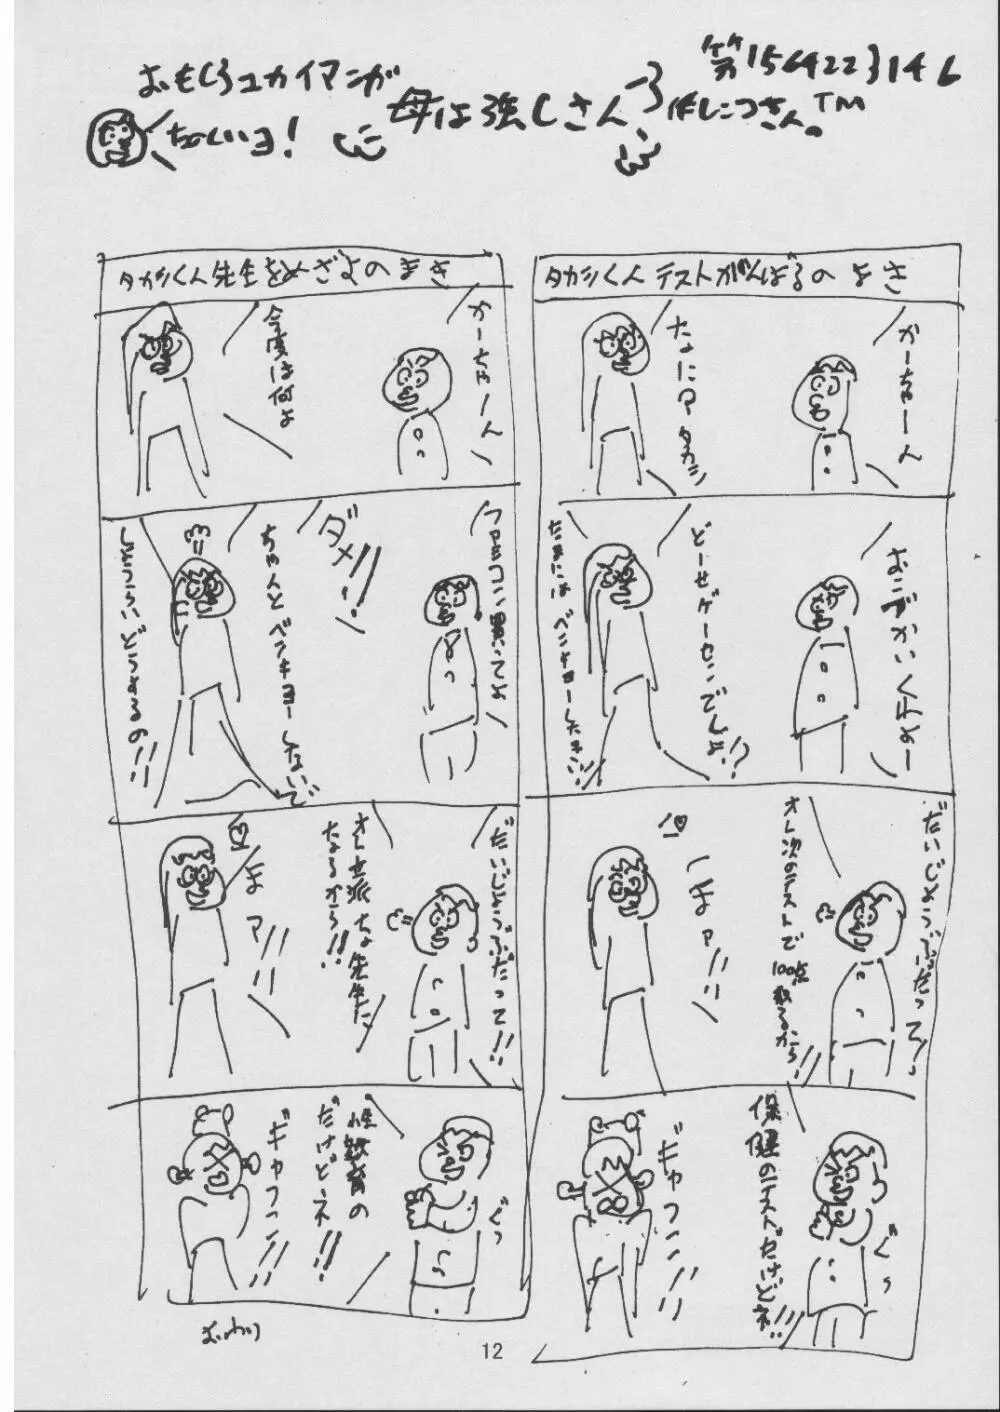 おもしろユカイマンガ
たのしいヨ!
母は強しさん
第1564223146
作しこつさん。TM
タカシくん テストがんばるの まき
かーちゃーん
なに? タカシ
おこづかいくれよー
どーせゲーセンでしょ!?
だめよ ベンキョーしなさい!!
だいじょうぶだって!!
オレ次のテストで
100点取るから!!
まァ!!
保健のテストだけどネ!!
ぐっ
ギャフン!!
タカシくん 先生をめざすの まき
かーちゃーん
今度は何よ
ダメ!!
ちゃんとベンキョーしないで
しょうらいどうするの!!
だいじょうぶだって!!
オレ立派な先生に
なるから!!
まァ!!
性教育の
だけどネ!!
ぐっ
ギャフン!!
おわり
12